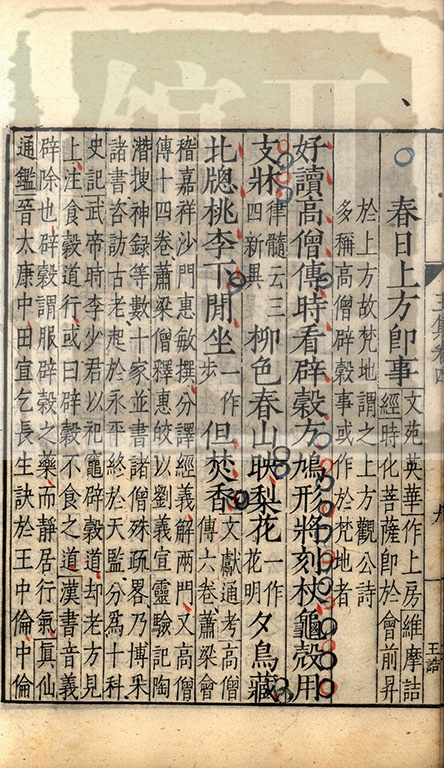 九
王誥
春日上方即事文苑英華作上房維摩詰
經時化菩薩即於會前昇
於上方故梵地謂之上方觀公詩
多稱高僧辟穀事或作於梵地者
好讀高僧傳時看辟穀方鳩形將刻杖龜殼用
支牀律髓云三四新異柳色春山映梨花一作花明夕鳥藏
北牕桃李下閒坐一作步但焚香文獻通考高僧傳六卷蕭梁會
稽嘉祥沙門惠敏撰分譯經義解兩門又高僧
傳十四卷蕭梁僧釋惠皎以劉義宣靈驗記陶
潛搜神錄等數十家並書諸僧殊疏畧乃博采
諸書咨訪古老起於永平終於天監分爲十科
史記武帝時李少君以祀竈辟穀道却老方見
上注食穀道行或曰辟穀不食之道漢書音義
辟除也辟穀謂服辟穀之藥而靜居行氣眞仙
通鑑晉太康中田宜乞長生訣於王中倫中倫